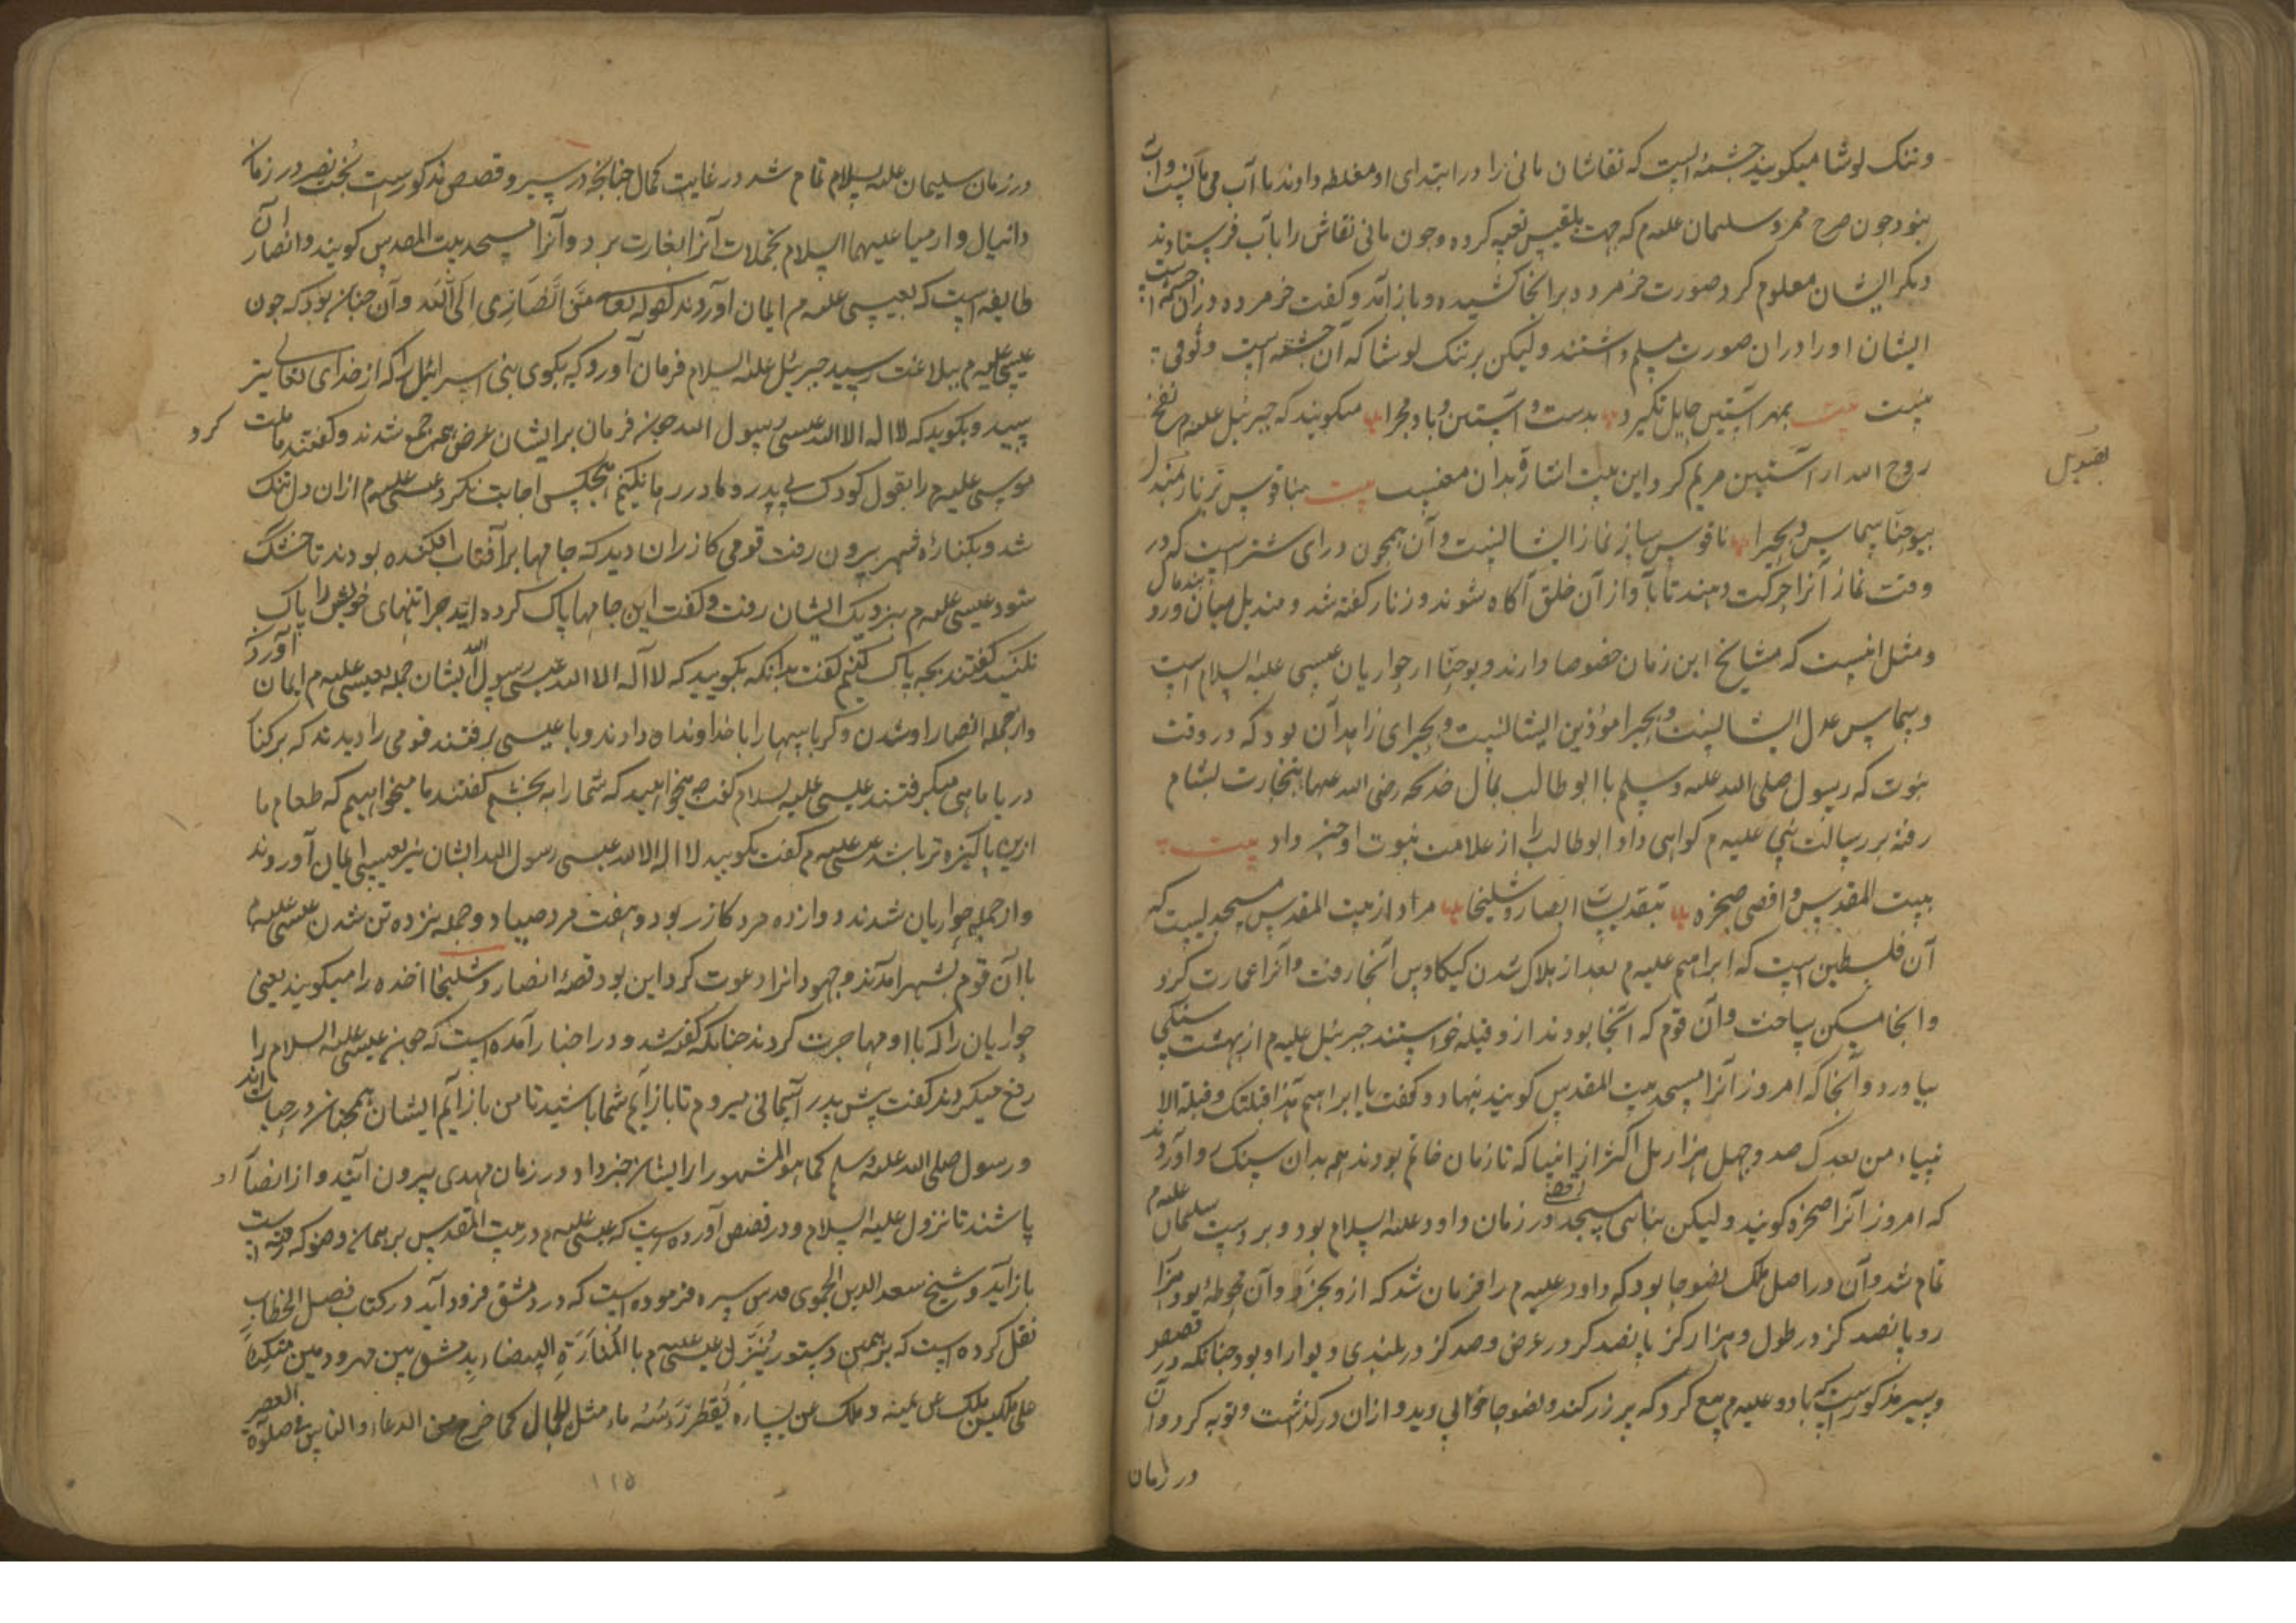 و تنک لوشا میکویند چشمهٔ است که نقاشان مانی را در ابتدای او مغلطه دادند با آب می مانست و آب
نبود چون صرح ممرد سلیمان علیه م که جهت بلقیس تعبیه کرده و چون مانی نقاش را بآب فرستادند
دیکر ایشان معلوم کرد صورت خر مرده برانجا کشیده و باز آمد و کفت خر مرده در ان چشمه است
ایشان او را دران صورت مسلم داشتند ولیکن بر تنک لوشا که آن چشمه است وقوفی
نیست بیت بمهر آستین حایل نکیرد بدست و آستین و باد مجرا میکویند که جبرئیل علیه م نفخ
روح الله در آستین مریم کرد و این بیت اشارة بدان معنیست بیت بناقوس بزنار بقندیل
بقندیل
بیوحنا شماس و بحیرا ناقوس ساز نماز ایشانست و آن همچون درای شتر است که در
وقت نماز آنرا حرکت دهند تا بآواز آن خلق آکاه شوند و زنار کفته شد و مندیل میان بند مال ورد
و مثل اینست که مشایخ این زمان خصوصا دارند و یوحنا از حواریان عیسی علیه السلام است
و شماس عدل ایشانست و بحیرا موذین ایشانست و بحیرای زاهد آن بود که در وقت
نبوت که رسول صلی الله علیه وسلم با ابو طالب بمال خدیجه رضی الله عنها بتجارت بشام
رفته بر رسالت نبی علیه م کواهی داد و ابو طالب را از علامت نبوت او خبر داد بیت
ببیت المقدس و اقصی صخره بتقدیسات انصار و شلیخا مراد از بیت المقدس مسجدیست که
آن فلسطین است که ابراهیم علیه م بعد از هلاک شدن کیکاوس آنجا رفت و آنرا عمارت کرد
و آنجا مسکن ساخت و آن قوم که آنجا بودند از و قبله خواستند جبرئیل علیه م از بهشت سنکی
بیاورد و آنجا که امروز آنرا مسجد بیت المقدس کویند بنهاد و کفت یا ابراهیم هذا قبلتک و قبلة الا
نبیاء من بعدک صد و چهل هزار بل اکثر از انبیا که تا زمان خاتم بودند هم بدان سنک رو آوردند
که امروز آنرا صخره کویند ولیکن بنای مسجد اقصی در زمان داود علیه السلام بود و بر دست سلیمان علیه م
تمام شد و آن در اصل ملک نضوجا بود که داود علیه م را فرمان شد که ازو بخرد و آن محوطهٔ بود هزار
رو پانصد کز در طول و هزار کز پانصد کز در عرض و صد کز در بلندی دیوار او بود چنانکه در قصص
و سیر مذکور است که با داود علیه م بیع کرد که پر زر کند و نضوجا خوابی دید و از ان در کذشت و توبه کرد و آن
در زمان
در زمان سلیمان علیه السلام تمام شد در غایت کمال چنانچه در سیر و قصص مذکورست بخت نصر در زمان
دانیال و ارمیا علیهما السلام بجملات آنرا بغارت برد و آنرا مسجد بیت المقدس کویند و انصار آن
طایفه است که بعیسی علیه م ایمان آوردند کقوله تعالی مَن اَنصَاری اِلَی الله و آن چنان بود که چون
عیسی علیه م ببلاغت رسید جبرئیل علیه السلام فرمان آورد که بکوی بنی اسرائیل را که از خدای تعالی بتر
سید و بکوید که لا اله الا الله عیسی رسول الله چون فرمان بر ایشان عرض جمع شدند و کفتند ما ملت
موسی علیه م را بقول کودک بی پدر و مادر رد ما نکنیم هیچکس اجابت نکرد عیسی علیه م ازان دل تنک
شد و بکنارهٔ شهر بیرون رفت قومی کازران دید که جامها بر آفتاب افکنده بودند تا خشک
شود عیسی علیه م بنزدیک ایشان رفت و کفت این جامها پاک کرده اید چرا تنهای خویش را پاک
نکنید کفتند بچه پاک کنیم کفت بدانکه بکویید که لا اله الا الله عیسی رسول الله ایشان جمله بعیسی علیه م ایمان آوردند
و از جمله انصار او شدن و کرباسها را با خداونداه دادند و با عیسی برفتند قومی را دیدند که بر کنا
دریا ماهی میکرفتند عیسی علیه السلام کفت چه میخواهید که شما را به بخشم کفتند ما میخواهیم که طعام ما
ازین پاکیزه تر باشد عیسی علیه م کفت بکویید لا اله الا الله عیسی رسول الله ایشان نیز بعیسی ایمان آوردند
و از جمله حواریان شدند دوازده مرد کازر بود و هفت مرد صیاد و جمله نزده تن شدن عیسی علیه م
با آن قوم بشهر آمدند و جهودانرا دعوت کرد این بود قصهٔ انصار و شلیخا اخذه را میکویند یعنی
حواریان را که با او مهاجرت کردند چنانکه کفته شد و در اخبار آمده است که چون عیسی علیه السلام را
رفع میکردند کفت پیش پدر آسمانی میروم تا باز آیم شما باشید تا من باز آیم ایشان همچنان در حیات اند
و رسول صلی الله علیه وسلم کما هو المشهور از ایشان خبر داد و در زمان مهدی بیرون آیند و از انصار او
باشند تا نزول علیه السلام و در قصص آورده است که عیسی علیه م در بیت المقدس بر همان وضو که رفته است
باز آید و شیخ سعد الدین الحموی قدس سره فرموده است که در دمشق فرود آید در کتاب فصل الخطاب
نقل کرده است که بر همین دستور یُنَزَّل عیسی علیه م با المَنَارَة البیضاء بدمشق بین مهرودتین متکئا
علی ملکین ملک عن یمینه و ملک عن یساره یَقطر رَأسُه ماء مثل کما خرج من والناس فی صلوة العصر
۱۱۵